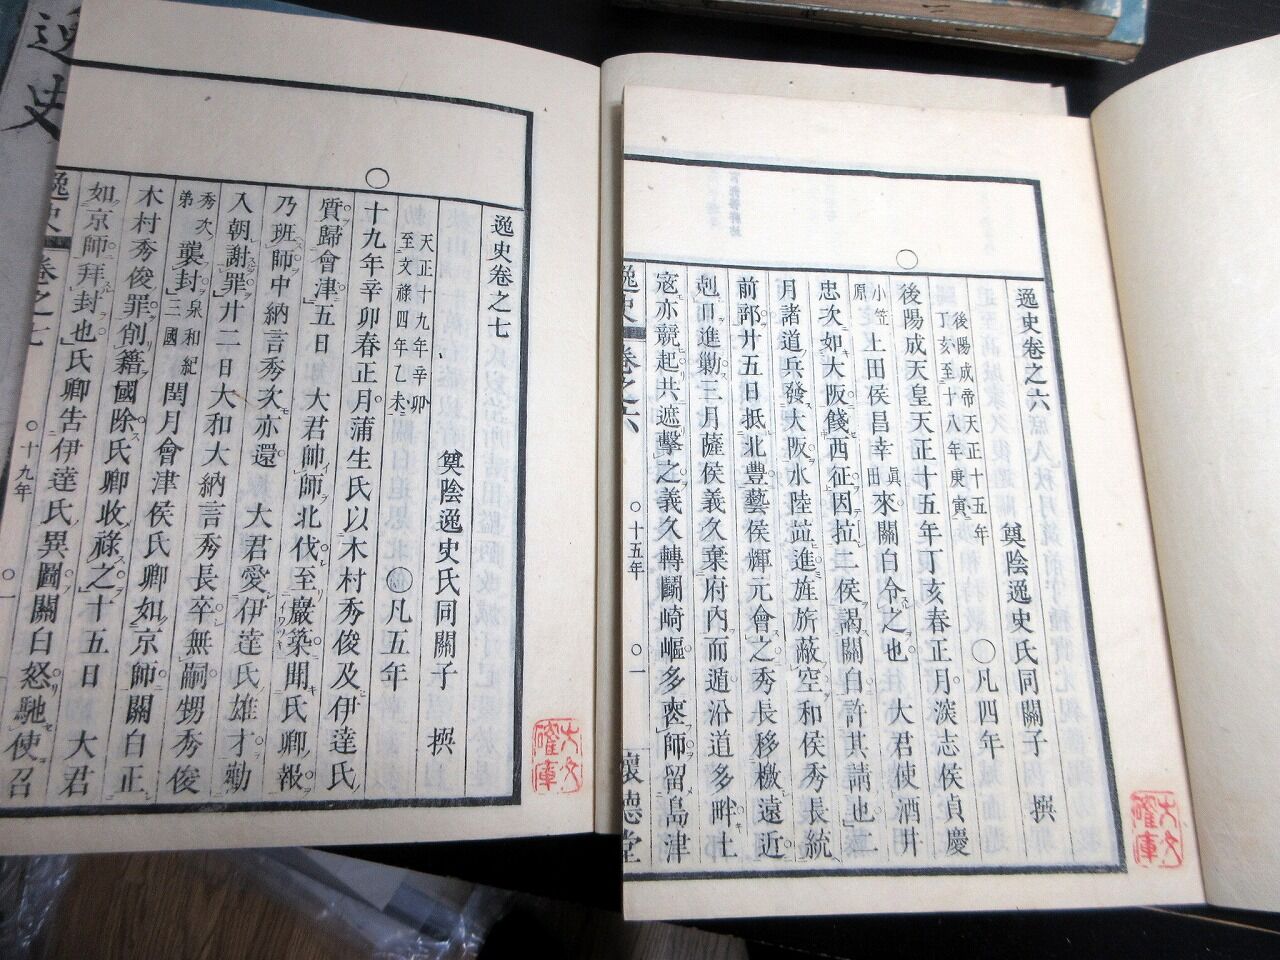 逸史卷之六
奠陰逸史氏同關子 撰
後陽成帝天正十五年
丁亥至十八年庚寅
○凡四年
○後陽成天皇天正十五年丁亥春正月淡志侯貞慶
小笠原
上田侯昌幸
眞田
來關白令之也 大君使酒井
忠次如大阪餞西征因拉二侯謁關白許其請也二
月諸道兵發大阪水陸竝進旌旂蔽空和侯秀長統
前部廿五日抵北豐藝侯輝元會之秀長移檄遠近
剋日進勦三月薩侯義久棄府内而遁沿道多畔土
寇亦競起共遮擊之義久轉鬬崎嶇多喪師留島津
逸史 卷之六 ○十五年 ○一 懷德堂
大文
確庫
逸史卷之七
天正十九年辛卯
至文祿四年乙未
奠陰逸史氏同關子 撰
○凡五年
○十九年辛卯春正月蒲生氏以木村秀俊及伊達氏
質歸會津五日 大君帥師北伐至巖築聞氏卿報
乃班師中納言秀次亦還 大君愛伊達氏雄才勸
入朝謝罪廿二日大和大納言秀長卒無嗣甥秀俊
秀次弟
襲封
泉和紀三國
閏月會津侯氏卿如京師關白正
木村秀俊罪削籍國除氏卿收祿之十五日 大君
如京師拜封也氏卿告伊達氏異圖關白怒馳使召
逸史 卷之七 ○十九年 ○一
大文
確庫
逸史